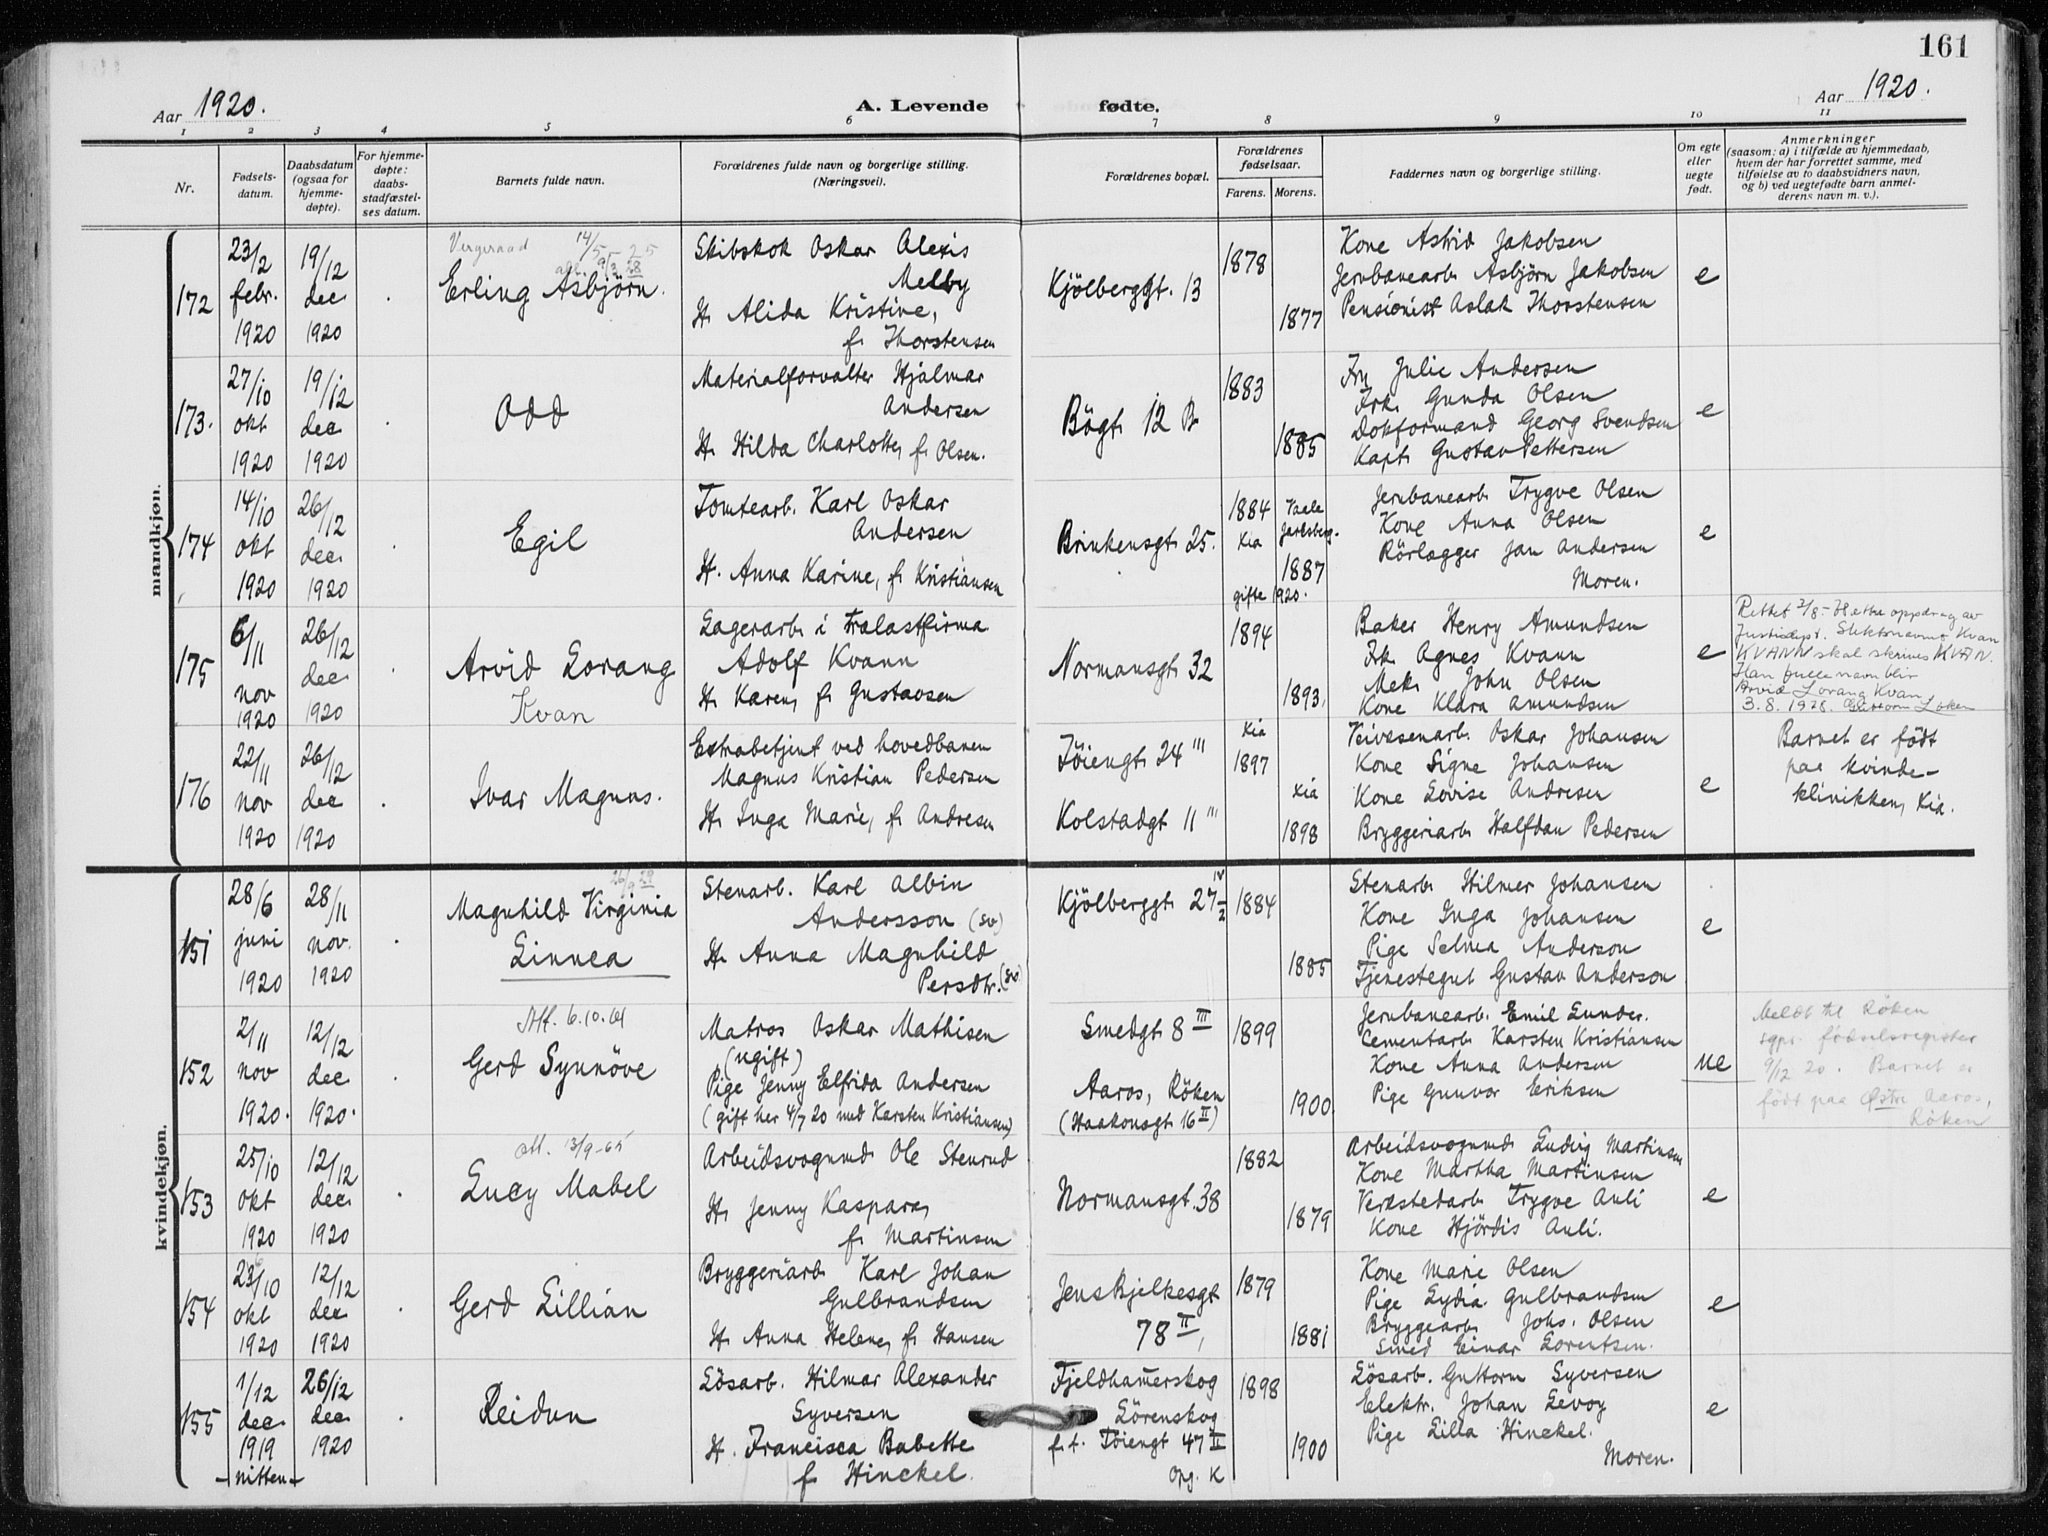 161
Aar 1920.
A. Levende fødte.
Aar 1920.
1 2 3 4 5 6 7 8 9 10 11
Nr.
Fødsels-
datum.
Daabsdatum
(ogsaa for
hjemme-
døpte).
For hjemme-
døpte:
daabs-
stadfæstel-
ses datum.
Barnets fulde navn.
Forældrenes fulde navn og borgerlige stilling.
(Næringsvei).
Forældrenes bopæl.
Forældrenes
fødselsaar.
Farens. Morens.
Faddernes navn og borgerlige stilling.
Om egte
eller
uegte
født.
Anmerkninger
(saasom: a) i tilfælde av hjemmedaab,
hvem der har forrettet samme, med
tilføielse av to daabsvidners navn,
og b) ved uegtefødte barn anmel-
derens navn m. v.).
mandkjøn.
172
23/2
febr.
1920
19/12
dec
1920
Vergeraad 14/5 25
Erling Asbjörn.
Skibskok Oskar Alexis
Melby
H. Alida Kristine,
f. Thorstensen
Kjölberggt. 13
1878
1877
Kone Astrid Jakobsen
Jernbanearb. Asbjørn Jakobsen
Pensionist Aslak Thorstensen
e
173.
27/10
okt
1920
19/12
dec
1920
Odd
Materialforvalter Hjalmar
Andersen
H. Hilda Charlotte, f. Olsen.
Bögt. 12 B
1883
1885
Fru Julie Andersen
Frk. Gunda Olsen
Dokformand Georg Svendsen
Kapt. Gustav Pettersen
e
174
14/10
okt
1920
26/12
dec.
1920
Egil
Tomtearb. Karl Oskar
Andersen
H. Anna Karine, f. Kristiansen
Brinkensgt. 25.
1884
Kia
Vaale
Jarlsberg.
1887
gifte 1920.
Jernbanearb. Trygve Olsen
Kone Anna Olsen
Rörlægger Jan Andersen
Moren.
e
175
6/11
nov
1920
26/12
dec
1920
Arvid Lorang
Kvan
Lagerarb. i Trælastfirma
Adolf Kvann
H. Karen, f. Gustavsen
Normansgt. 32
1894
1893.
Baker Henry Amundsen
Frk. Agnes Kvann
Mek. John Olsen
Kone Klara Amundsen
e
Rettet 2/8-28 etter oppdrag av
Justisdept. Slektsnavnet Kvan
KVANN skal skrives KVAN.
Han fulle navn blir
Arvid Lorang Kvan
3.8.1928. Guttorm Løken
176
22/11
nov
1920
26/12
dec
1920
Ivar Magnus.
Extrabetjent ved hovedbanen
Magnus Kristian Pedersen
H. Inga Marie, f. Andresen
Töiengt. 24 III
Kolstadgt 11 III
Kia
1897
Kia
1898
Veivesenarb. Oskar Johansen
Kone Signe Johansen
Kone Lovise Andresen
Bryggeriarb. Halfdan Pedersen
e
Barnet er födt
paa kvinde-
klinikken, Kia.
kvindekjøn.
151
28/6
juni
1920
28/11
nov.
1920
Magnhild Virginia
Linnea
Stenarb. Karl Albin
Andersson (sv)
H. Anna Magnhild
Persdtr. (sv)
Kjölberggt. 27 IV/2
1884
1885
Stenarb. Hilmer Johansen
Kone Inga Johansen
Pige Selma Anderson
Tjenestegut Gustav Anderson
e
152
2/11
nov
1920.
12/12
dec
1920.
Att. 6.10.61
Gerd Synnöve
Matros Oskar Mathisen
(ugift)
Pige Jenny Elfrida Andersen
(gift her 4/7 20 med Karsten Kristiansen)
Smedgt. 8 III
Aaros, Röken
(Haakonsgt. 16 II)
1899
1900.
Jernbanearb. Emil Lunder.
Cementarb. Karsten Kristiansen
Kone Anna Andersen
Pige Gunvor Eriksen
ue
Meldt til Röken
sgpr. födselsregister
9/12 20. Barnet er
födt paa Østre Aaros,
Röken
153
25/10
okt
1920
12/12
dec
1920
Att. 13/9-65
Lucy Mabel
Arbeidsvognmd. Ole Stenrud
H. Jenny Kaspara,
f. Martinsen
Normansgt. 38
1882
1879
Arbeidsvognmd. Ludvig Martinsen
Kone Martha Martinsen
Verkstedarb. Trygve Auli
Kone Hjördis Auli.
e
154
23/10
okt
1920
12/12
dec
1920
Gerd Lillian
Bryggeriarb. Karl Johan
Gulbrandsen
H. Anna Helene, f. Hansen
Jens Bjelkesgt
78 II,
1879
1881
Kone Marie Olsen
Pige Lydia Gulbrandsen
Bryggearb. Johs. Olsen
Smed Einar Lorentsen.
e
155
1/12
dec
1919
-nitten-
26/12
dec
1920
Reidun
Lösarb. Hilmar Alexander
Syversen
H. Francisca Babette
f. Hinckel.
Fjeldhamerskog
Lörenskog
f. t. Töiengt 47 II
Opg. K
1898
1900
Lösarb. Guttorm Syversen
Elektr. Johan Levoy
Pige Lilla Hinckel.
Moren.
e